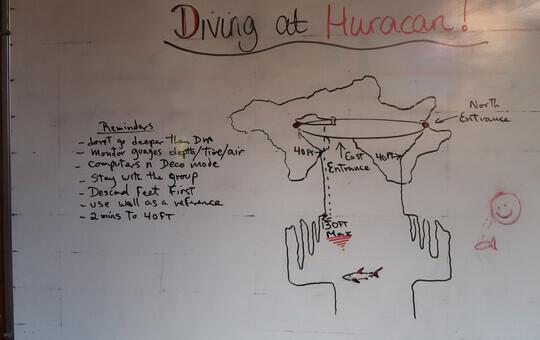 Diving at Huracan!
Reminders
- don't go deeper than DM
- Monitor guages depth/time/air
- Computers n Deco mode
- Stay with the group
- Descend feet first
- use wall as a reference
- 2 mins to 40FT
North
Entrance
40FT
East
Entrance
40FT
130FT
Max